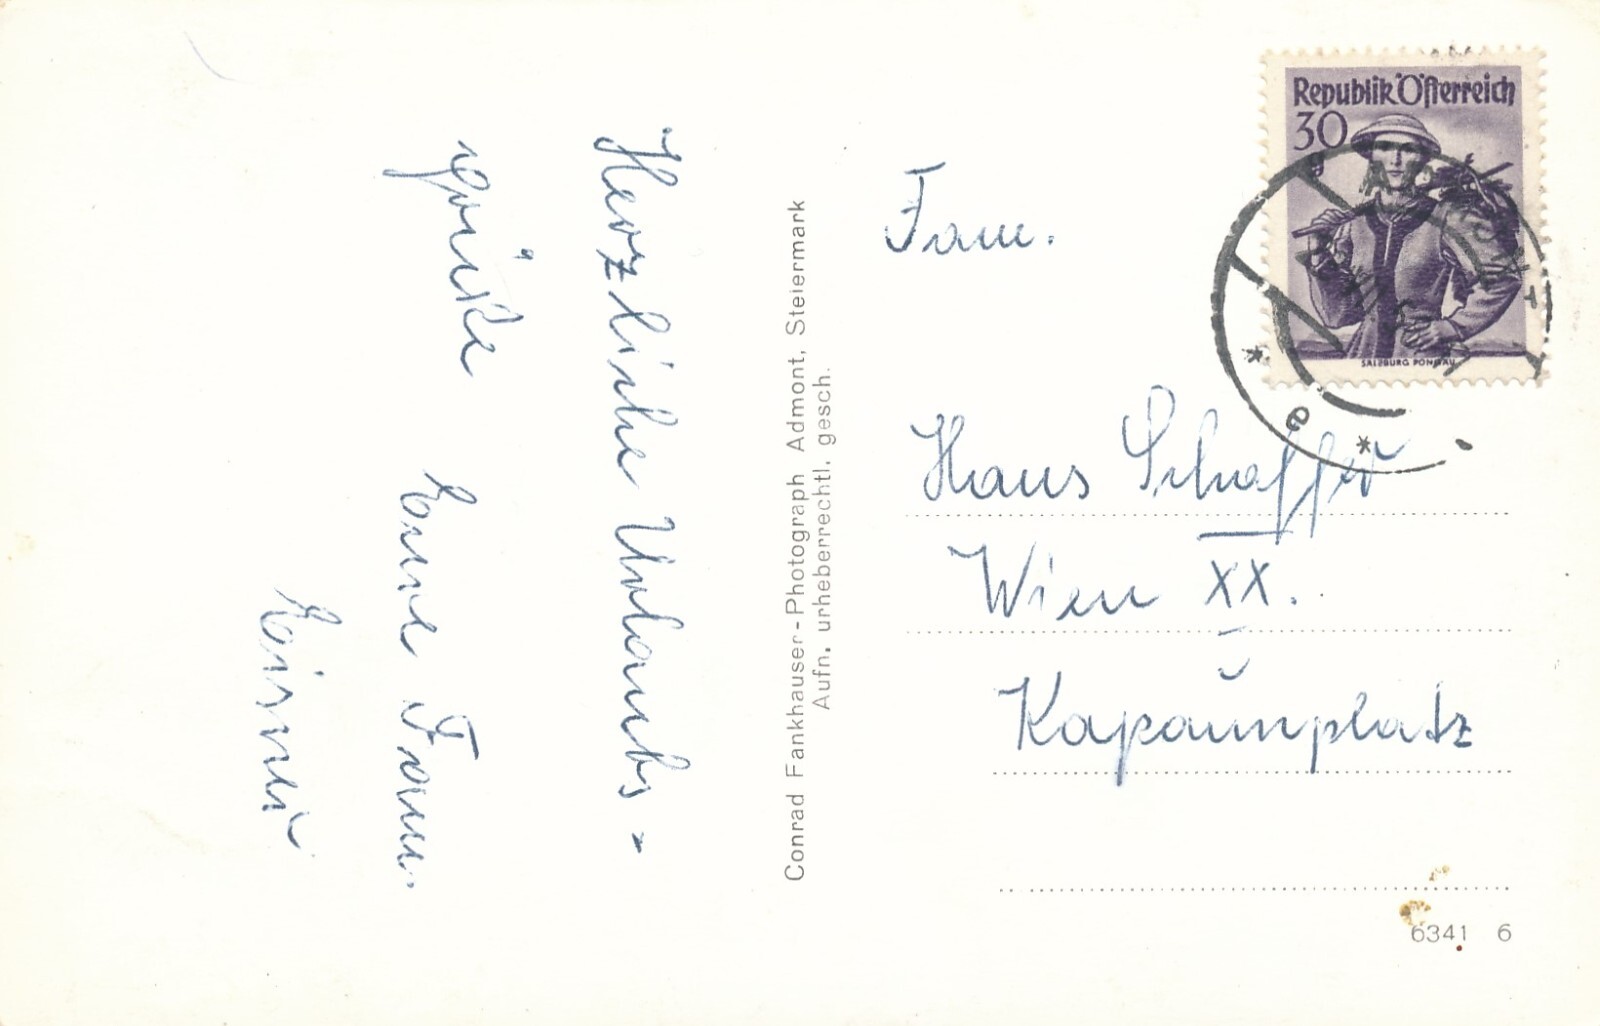 Herzliche Urlaubs-
grüße
Eure Fam.
Republik Österreich
30 g
SALZBURG PONGAU
e
Fam.
Hans Schaffer
Wien XX.
Kapaunplatz
Conrad Fankhauser - Photograph Admont, Steiermark
Aufn. urheberrechtl. gesch.
6341 6